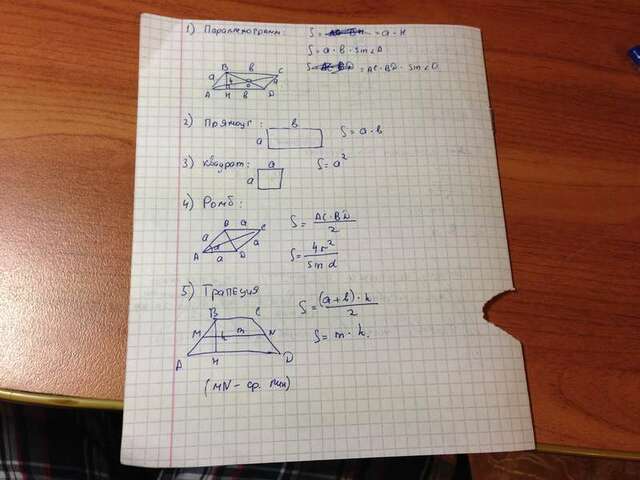 1) Параллелограмм: S = = a · H
S = a · b · sin∠A
S = AC · BD · sin∠O
B b C
a h a
O
A H b D
2) Прямоуг: b
a S = a · b
3) Квадрат: a
a S = a²
4) Ромб:
B a C
a a
A a D
S = AC·BD / 2
S = 4r² / sin α
5) Трапеция
B C
M h m N
A H D
S = (a+b)·h / 2
S = m · h.
(MN - ср. лин)